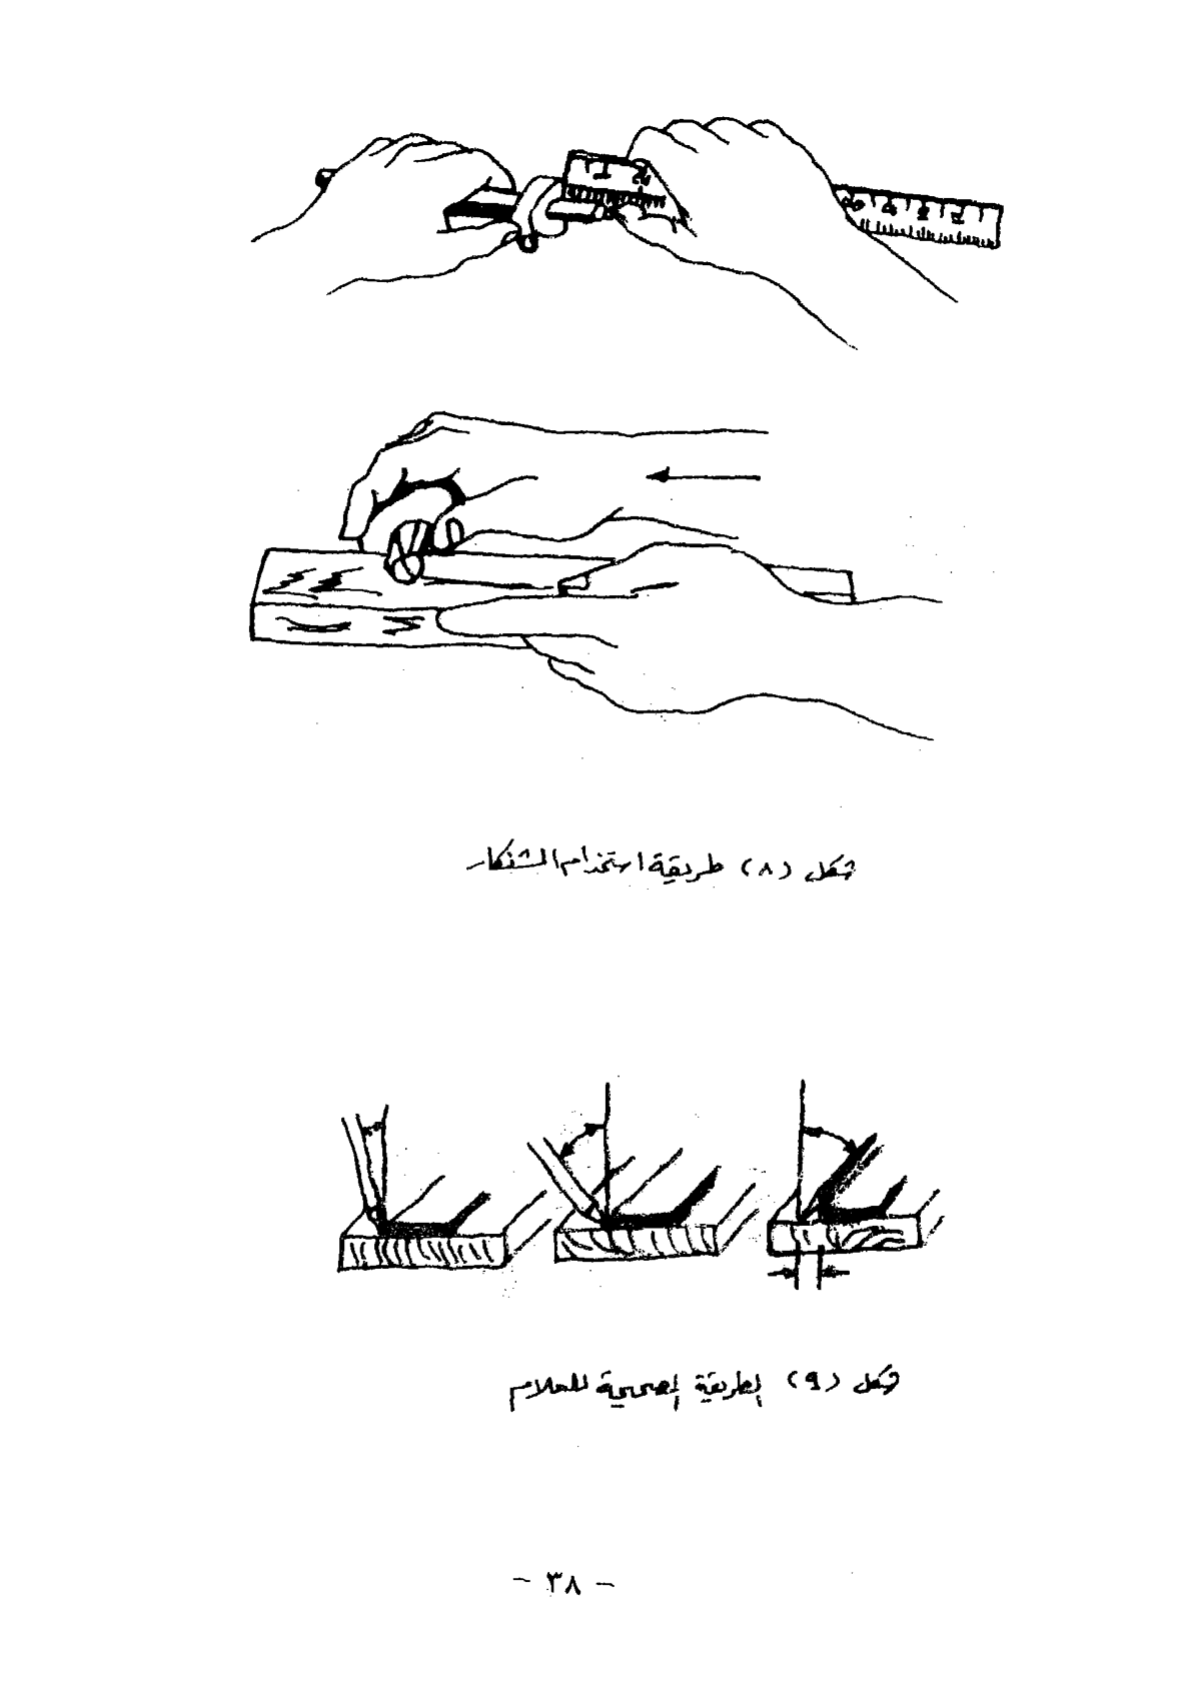 شكل (٨) طريقة استخدام الشنكار
شكل (٩) الطريقة الصحيحة للعلام
- ٣٨ -